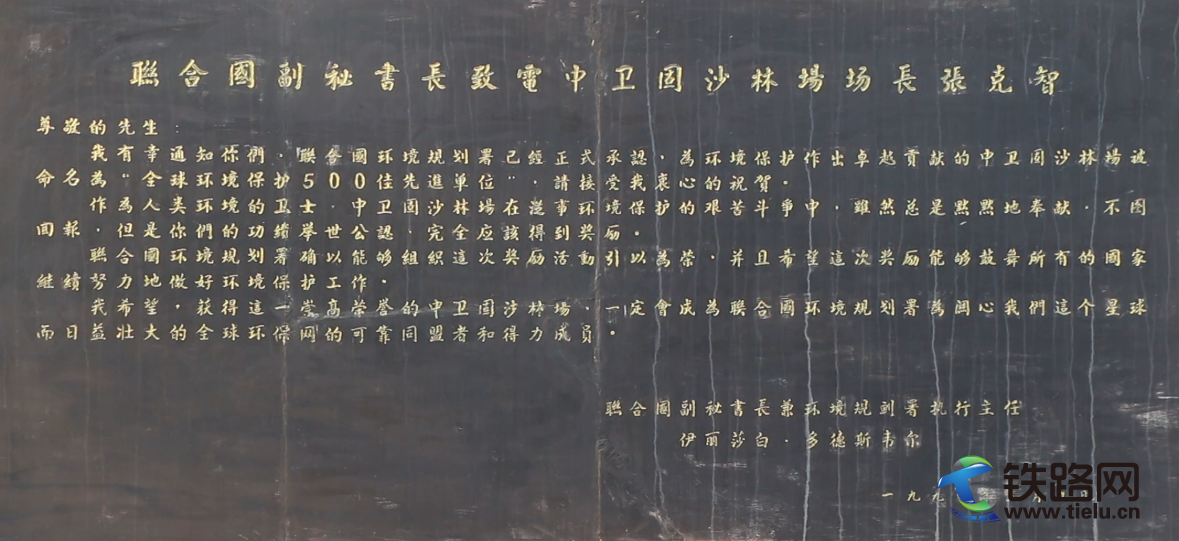 聯合國副秘書長致電中卫固沙林場场長張克智
尊敬的先生：
我有幸通知你們，聯合國环境規划署已經正式承認，為环境保护作出卓越貢献的中卫固沙林場被
命名為“全球环境保护500佳先進单位”，請接受我衷心的祝賀。
作為人类环境的卫士，中卫固沙林場在從事环境保护的艰苦斗爭中，雖然总是默默地奉献，不图
回報，但是你們的功績举世公認，完全应該得到奖励。
聯合國环境規划署确以能够組织這次奖励活動引以為荣，并且希望這次奖励能够鼓舞所有的國家
继續努力地做好环境保护工作。
我希望，获得這一崇高荣誉的中卫固沙林場，一定會成為聯合國环境規划署為関心我們這个星球
而日益壮大的全球环保网的可靠同盟者和得力成員。
聯合國副秘書長兼环境規划署执行主任
伊丽莎白·多德斯韦尔
一九九
铁路网
www.tielu.cn